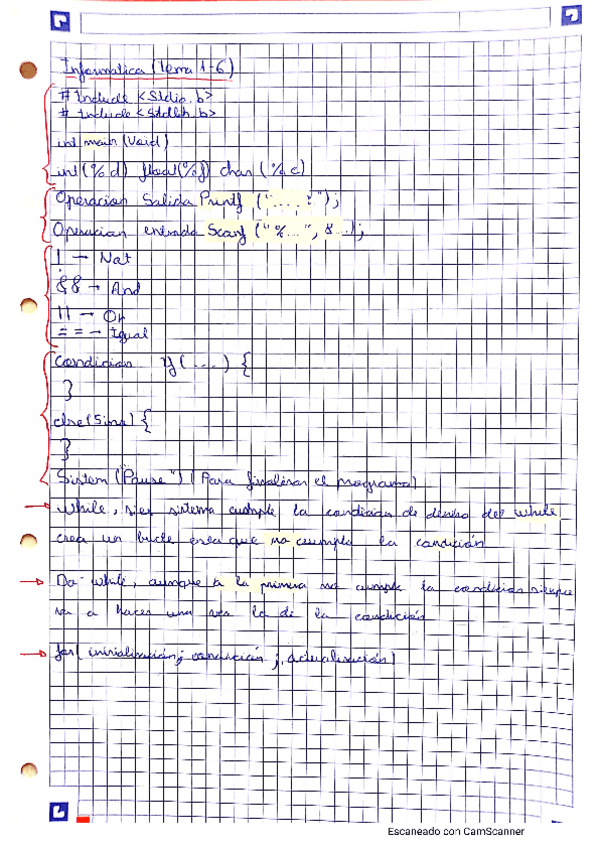 Informatica (Tema 1-6)
# Include <Stdio.h>
# Include <Stdlib.h>
int main (Void)
int (%d) float (%f) char (%c)
Operacion Salida Printf (".....");
Operacion entrada Scanf ("%...", &...);
! → Not
&& → And
|| → Or
== → Igual
Condicion if (....) {
}
else (Sino) {
}
Sistem ("Pause") (Para finalizar el programa)
While, si el sistema cumple la condicion de dentro del while
crea un bucle hasta que no cumpla la condición
Do-while, aunque a la primera no cumple la condicion siempre
va a hacer una vez lo de la condición
for (inicialización; condición; actualización)
Escaneado con CamScanner